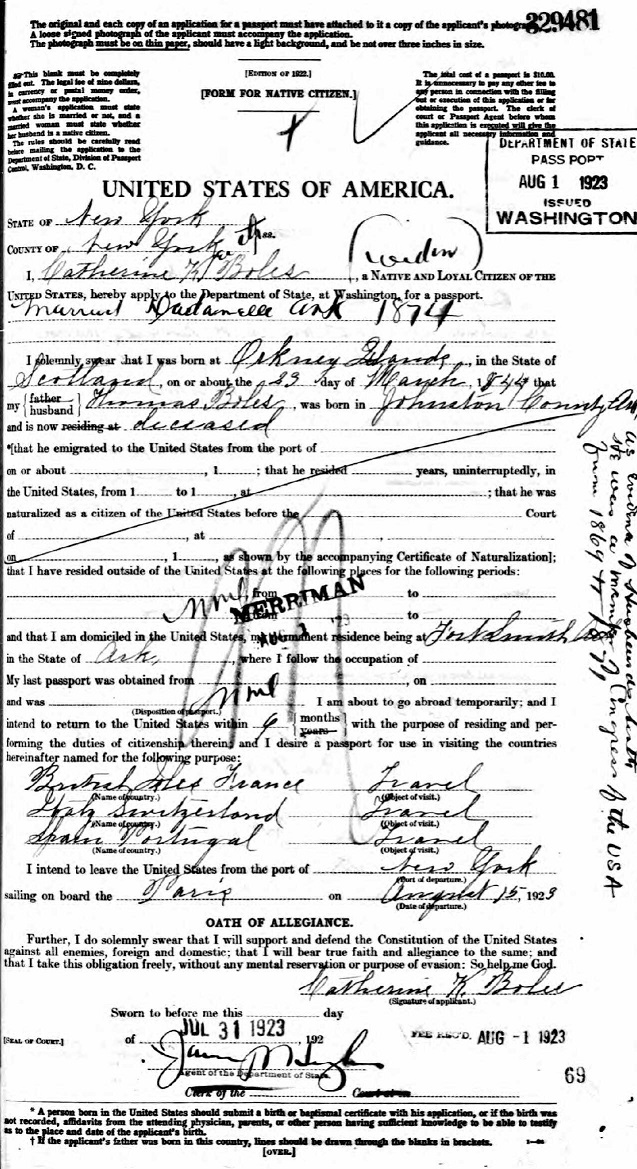 The original and each copy of an application for a passport must have attached to it a copy of the applicant's photograph.
A loose signed photograph of the applicant must accompany the application.
The photograph must be on thin paper, should have a light background, and be not over three inches in size.
329481
This blank must be completely
filled out. The legal fee of nine dollars,
in currency or postal money order,
must accompany the application.
A woman's application must state
whether she is married or not, and a
married woman must state whether
her husband is a native citizen.
The rules should be carefully read
before mailing the application to the
Department of State, Division of Passport
Control, Washington, D. C.
[EDITION OF 1922.]
[FORM FOR NATIVE CITIZEN.]
The total cost of a passport is $10.00.
It is unnecessary to pay any other fee to
any person in connection with the filling
out or execution of this application or for
obtaining the passport. The clerk of
court or Passport Agent before whom
this application is executed will give the
applicant all necessary information and
guidance.
DEPARTMENT OF STATE
PASSPORT
AUG 1 1923
ISSUED
WASHINGTON
UNITED STATES OF AMERICA.
STATE OF New York
COUNTY OF New York ss.
(widow)
I, Catherine K. Boles, a NATIVE AND LOYAL CITIZEN OF THE
UNITED STATES, hereby apply to the Department of State, at Washington, for a passport.
Married Dardanelle Ark 1874
I solemnly swear that I was born at Orkney Islands, in the State of
Scotland, on or about the 23 day of March, 1844 that
my {father husband} Thomas Boles, was born in Johnston County Ark
and is now residing at deceased
*[that he emigrated to the United States from the port of
on or about , 1 ; that he resided years, uninterruptedly, in
the United States, from 1 to 1 , at ; that he was
naturalized as a citizen of the United States before the Court
of , at ,
on , 1 , as shown by the accompanying Certificate of Naturalization];
that I have resided outside of the United States at the following places for the following periods:
from to
None from to
MERRIMAN
AUG 1 '23
and that I am domiciled in the United States, my permanent residence being at Fort Smith
in the State of Ark, where I follow the occupation of
My last passport was obtained from , on
and was None I am about to go abroad temporarily; and I
(Disposition of passport.)
intend to return to the United States within 9 {months years} with the purpose of residing and per-
forming the duties of citizenship therein; and I desire a passport for use in visiting the countries
hereinafter named for the following purpose:
British Isles France Travel
(Name of country.) (Object of visit.)
Italy Switzerland Travel
(Name of country.) (Object of visit.)
Spain Portugal Travel
(Name of country.) (Object of visit.)
I intend to leave the United States from the port of New York
(Port of departure.)
sailing on board the Paris on August 15, 1923
(Date of departure.)
As evidence of Husbands birth
He was a member of Congress of the USA
from 1869 to 1871
OATH OF ALLEGIANCE.
Further, I do solemnly swear that I will support and defend the Constitution of the United States
against all enemies, foreign and domestic; that I will bear true faith and allegiance to the same; and
that I take this obligation freely, without any mental reservation or purpose of evasion: So help me God.
Catherine K. Boles
(Signature of applicant.)
Sworn to before me this day
of JUL 31 1923, 192
FEE REC'D. AUG -1 1923
[SEAL OF COURT.]
Agent of the Department of State.
Clerk of the Court at
69
* A person born in the United States should submit a birth or baptismal certificate with his application, or if the birth was
not recorded, affidavits from the attending physician, parents, or other person having sufficient knowledge to be able to testify
as to the place and date of the applicant's birth.
† If the applicant's father was born in this country, lines should be drawn through the blanks in brackets.
[OVER.]